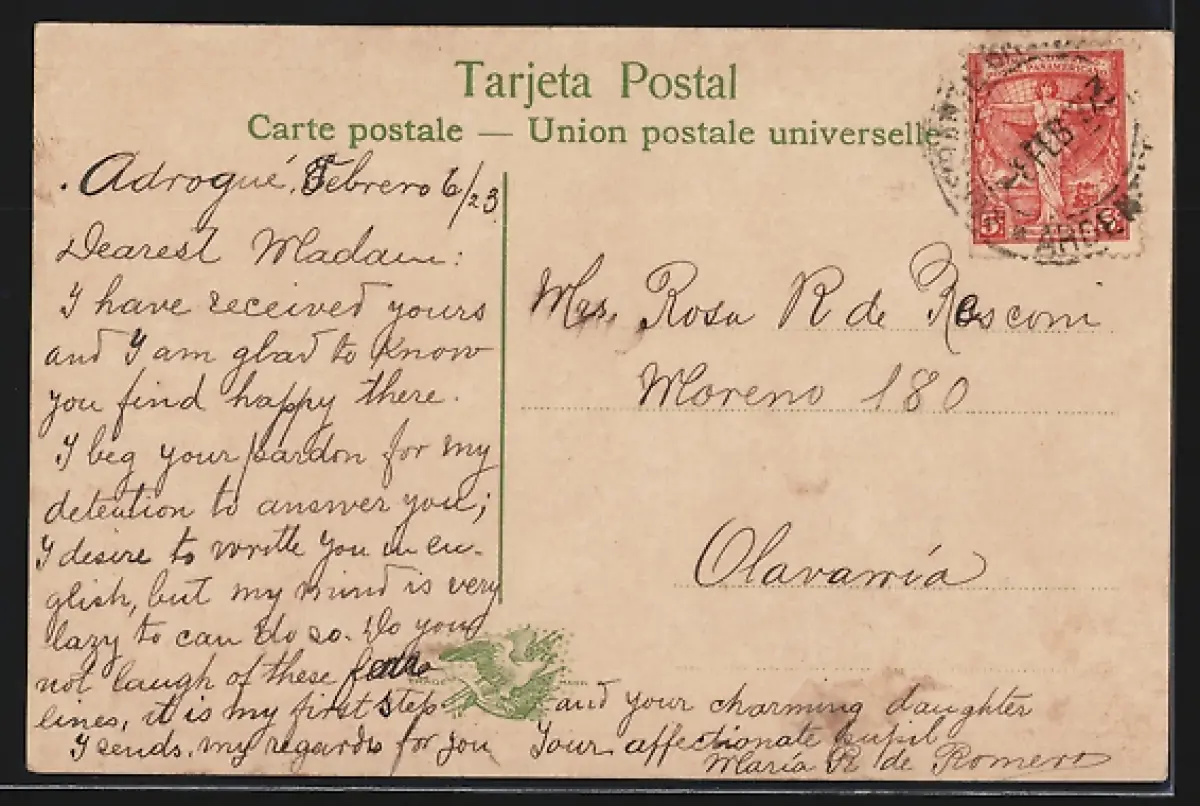 Tarjeta Postal
Carte postale — Union postale universelle
Adrogué, Febrero 6/23
Dearest Madam:
I have received yours
and I am glad to know
you find happy there.
I beg your pardon for my
detention to answer you;
I desire to write you in en-
glish, but my mind is very
lazy to can do so. Do you
not laugh of these
lines, it is my first step
I sends my regards for you
and your charming daughter
Your affectionate pupil
María R de Romero
Mrs. Rosa R de Rosconi
Moreno 180
Olavarría
FEB
5c 5c